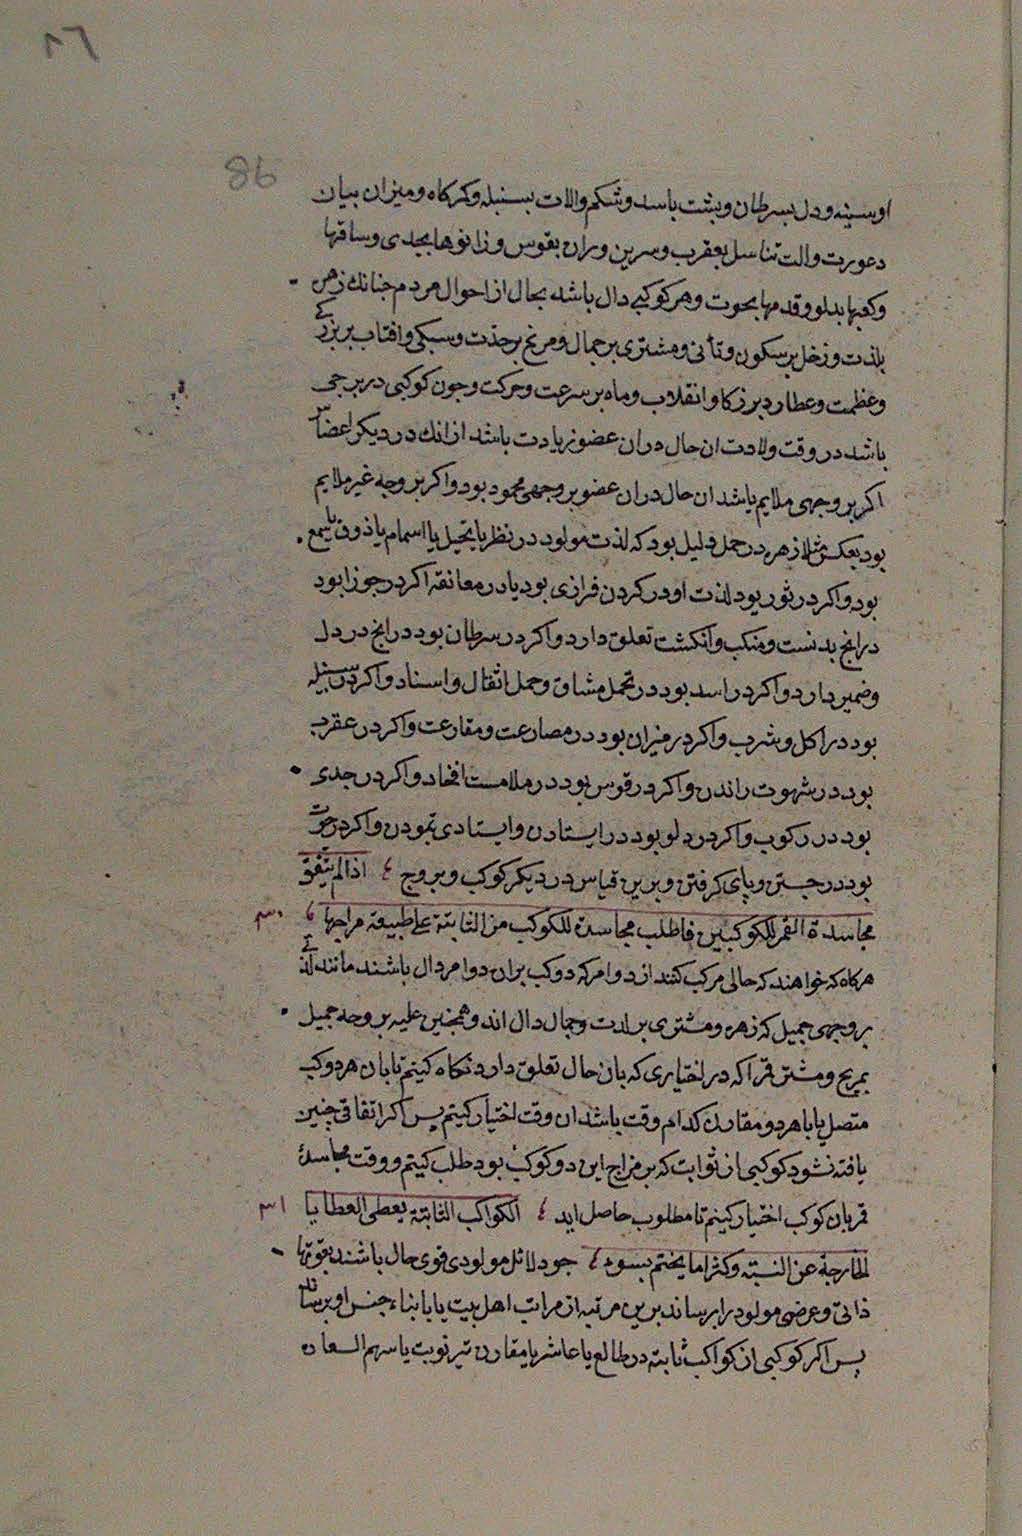 ٨٦
86
او سینه و دل بسرطان و پشت باسد و شکم والات بسنبله و کمرکاه و میزان بیان
دعورت والت تناسل بعقرب و سرین و ران بقوس و زانوها بجدی و ساقها
و کعبها بدلو و قدمها بحوت و هر کوکبی دال باشد بحال از احوال مردم جنانك زهره
بلذت و زحل بر سکون و تأنی و مشتری بر جمال و مریخ بر حدت و سبکی وافتاب بر بزرکی
وعظمت و عطارد بر ذکا و انقلاب و ماه بر سرعت و حرکت و جون کوکبی در برجی
باشد در وقت ولادت ان حال دران عضو زیادت باشد ازانك در دیکر اعضا
اکر بر وجهی ملایم باشد ان حال دران عضو بر وجهی محمود بود واکر بر وجه غیر ملایم
بود بعکس مثلا زهره در حمل دلیل بود که لذت مولود در نظر یا تخیل یا اسمام یا ذوق یا سمع
بود واکر در ثور بود لذت او در کردن فرازی بود یا در معانقه اکر در جوزا بود
در انج بدست و منکب وانکشت تعلق دارد واکر در سرطان بود در انج در دل
و ضمیر دارد واکر در اسد بود در تحمل مشاق و حمل اثقال و اسناد واکر در سنبله
بود در اکل و شرب واکر در میزان بود در مصارعت و مقارعت واکر در عقرب
بود در شهوت راندن واکر در قوس بود در ملامست افخاد واکر در جدی
بود در رکوب واکر در دلو بود در ایستادن وایستادی نمودن واکر در حوت
بود در جستن و پای کرفتن و برین قیاس در دیکر کوکب و بروج ٤ اذا لم یتفق
مجاسدة القمر للکوکبین فاطلب مجاسدة للکوکب من الثابتة علی طبیعة مزاجها ٤ ٣٠
هرکاه که خواهند که حالی مرکب کنند از دو امر که دو کب بران دو امر دال باشند مانند لذتی
بر وجهی جمیل که زهره و مشتری بر لدت و جمال دال اند و همچنین علیه بر وجه جمیل
بمریخ و مشتری قمرا که در اختیاری که بان حال تعلق دارد نکاه کنیم تا بان هر دو کب
متصل یا با هر دو مقارن کدام وقت باشد ان وقت اختیار کنیم پس اکر اتفاقی چنین
یافته نشود کوکبی از ثوابت که بر مزاج این دو کوکب بود طلب کنیم و وقت مجاسدۀ
قمر بان کوکب اختیار کنیم تا مطلوب حاصل اید ٤ الکواکب الثابتة یعطی العطایا ٣١
الخارجة عن النسبته و کثرا ما یختم بسوء ٤ جو دلائل مولودی قوی حال باشند بقوتها
ذاتی و عرضی مولود را برساند برین مرتبه از مراتب اهل بیت یا با بناء جنس او برساند
پس اکر کوکبی از کواکب ثابته در طالع یا عاشر یا مقارن نیر نوبت یا سهم السعاده